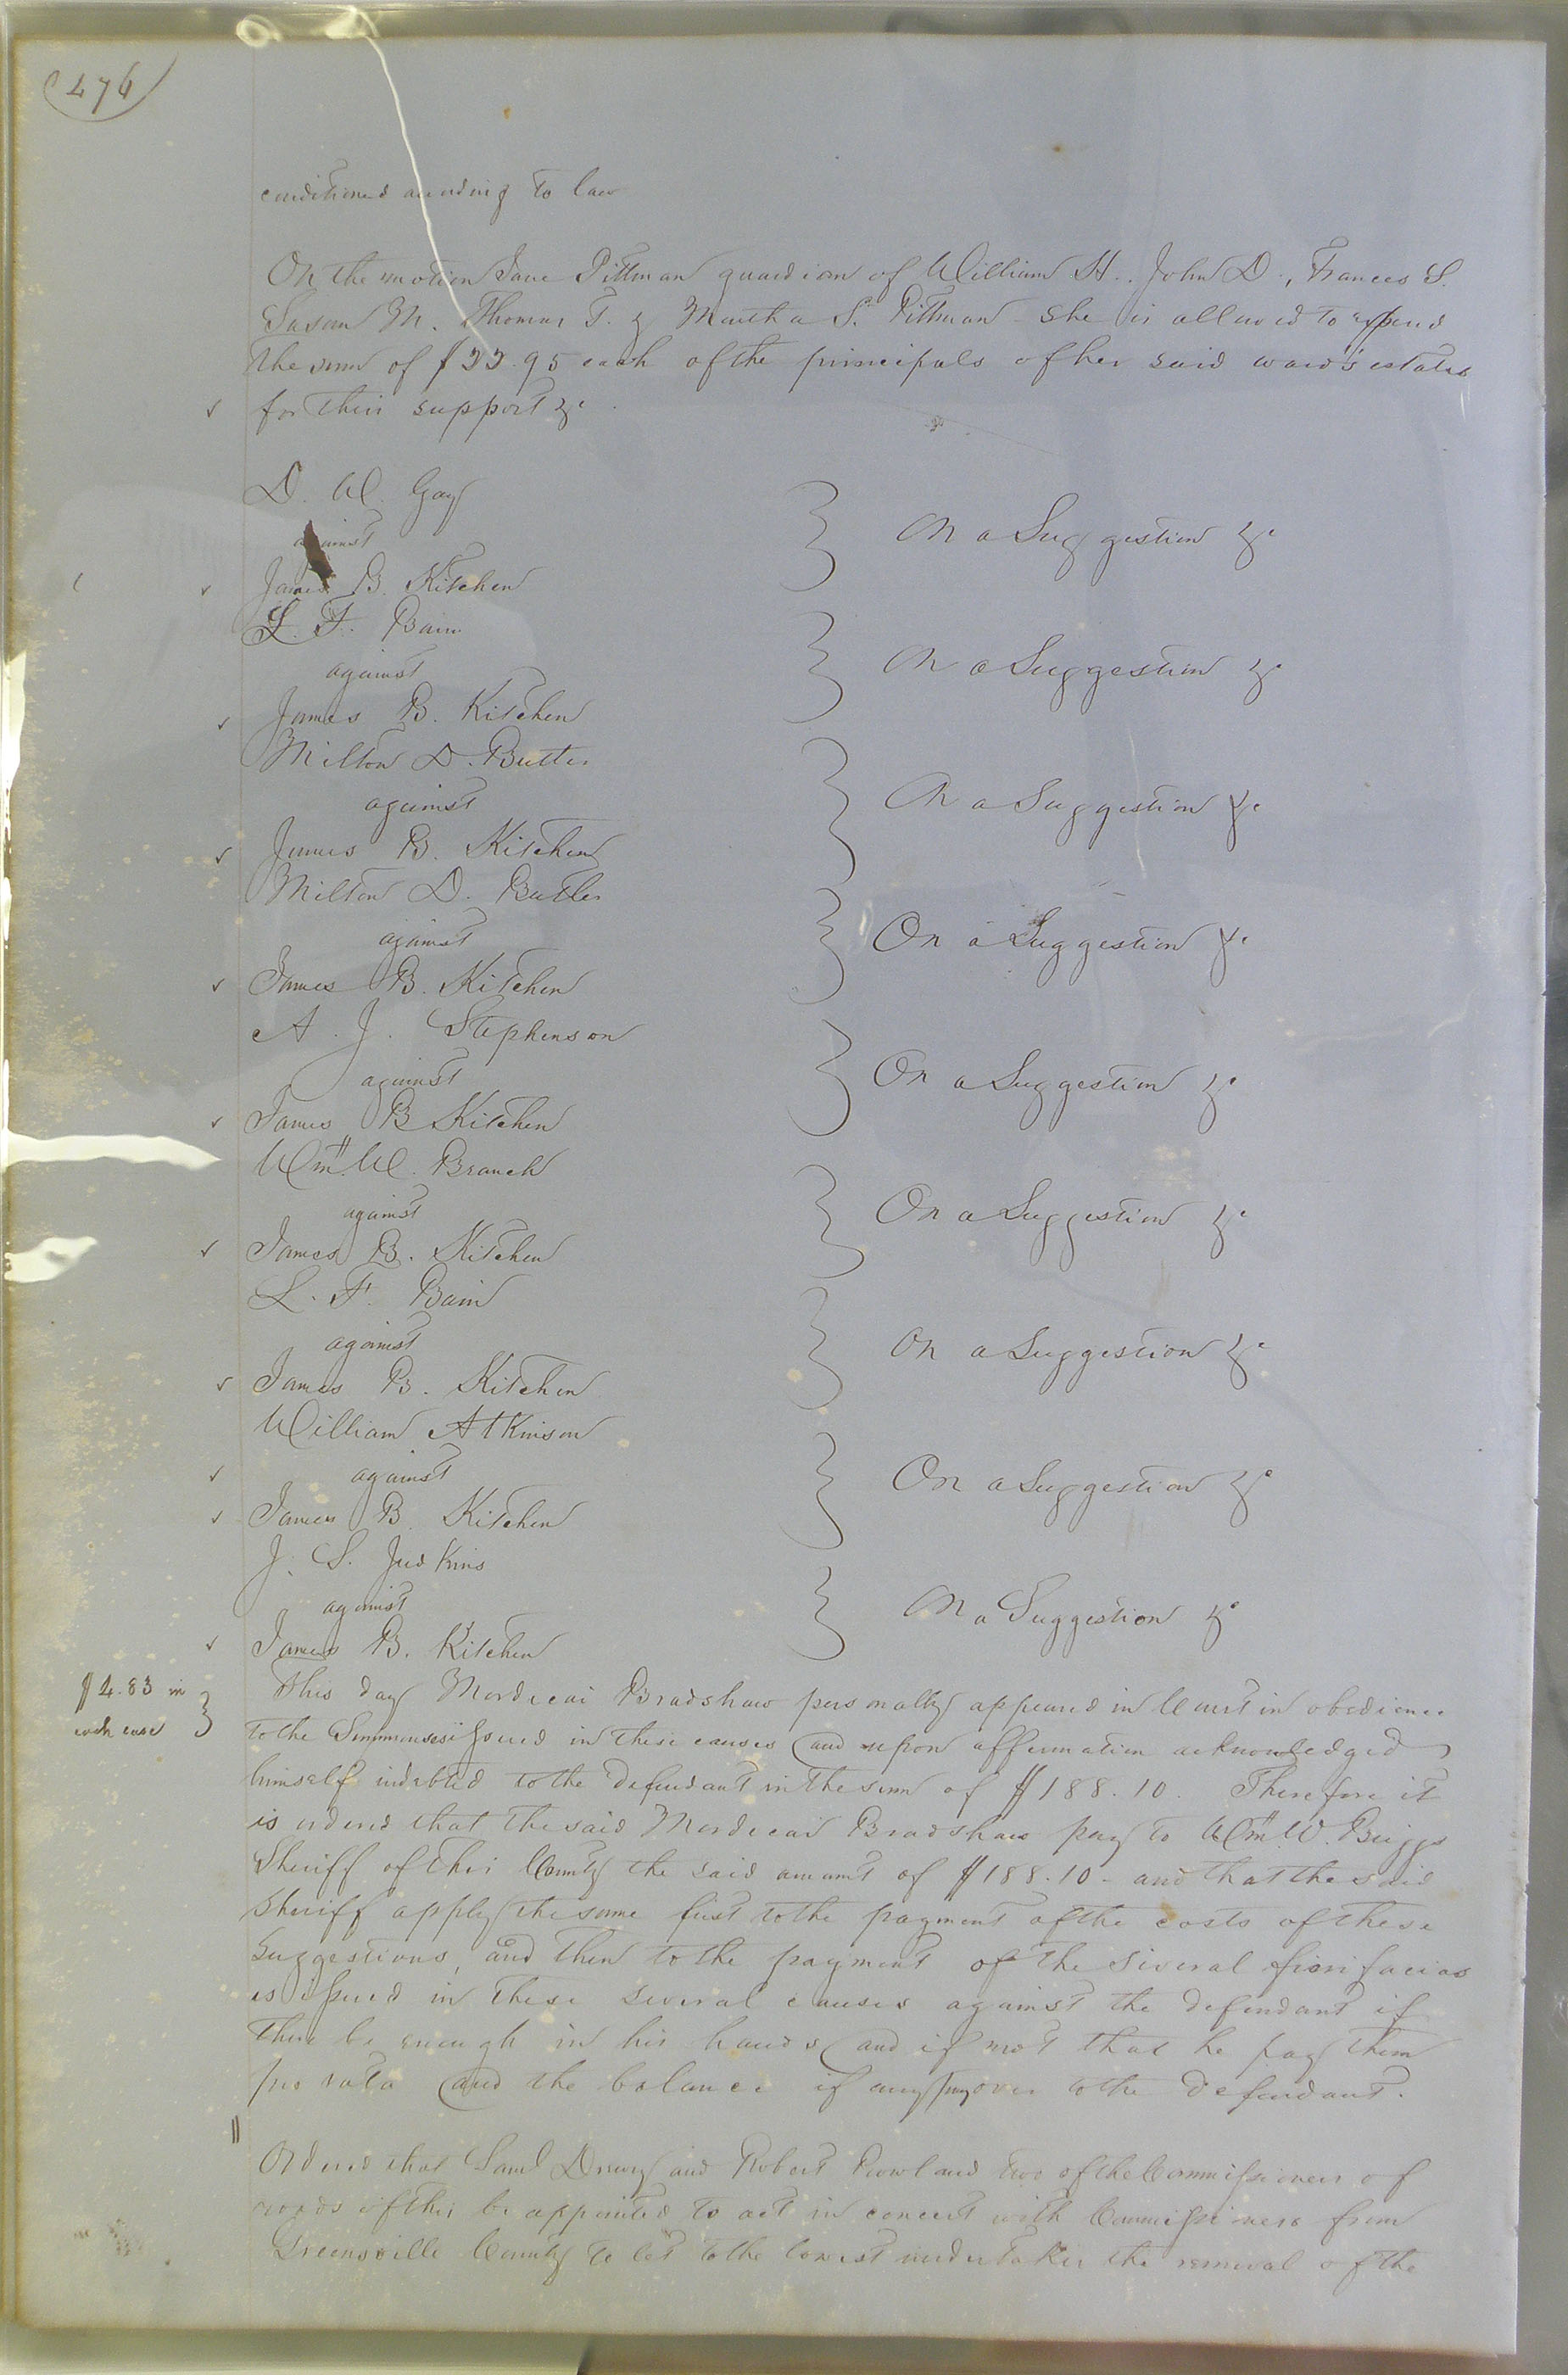 476
conditioned according to law
On the motion Jane Pittman guardian of William H. John D., Frances S.
Susan M. Thomas T. & Martha S. Pittman she is allowed to expend
the sum of $33.95 each of the principals of her said ward's estates
for their support &c
D. W. Gay
against
James B. Kitchen
On a Suggestion &c
L. F. Bain
against
James B. Kitchen
On a Suggestion &c
Milton D. Butler
against
James B. Kitchen
On a Suggestion &c
Milton D. Butler
against
James B. Kitchen
On a Suggestion &c
A. J. Stephenson
against
James B Kitchen
On a Suggestion &c
Wm W. Branch
against
James B. Kitchen
On a Suggestion &c
L. F. Bain
against
James B. Kitchen
On a Suggestion &c
William Atkinson
against
James B. Kitchen
On a Suggestion &c
J. S. Judkins
against
James B. Kitchen
On a Suggestion &c
$4.83 in
each case
This day Mordecai Bradshaw personally appeared in Court in obedience
to the Summonses issued in these causes and upon affirmation acknowledged
himself indebted to the defendant in the sum of $188.10. Therefore it
is ordered that the said Mordecai Bradshaw pay to Wm W. Briggs
Sheriff of this County the said amount of $188.10 - and that the said
Sheriff apply the same first to the payment of the costs of these
Suggestions, and then to the payment of the several fieri facias
es issued in these several causes against the defendant if
there be enough in his hands and if not that he pay them
pro rata and the balance if any pay over to the defendant.
Ordered that Saml Drewry and Robert Rowland two of the Commissioners of
roads of this be appointed to act in concert with Commissioners from
Greensville County to let to the lowest undertaker the removal of the